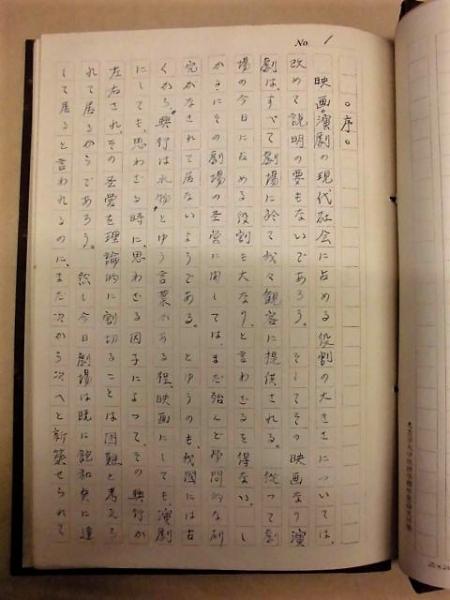 No. 1
。序。
映画、演劇の現代社会に占める役割の大きさについては、
改めて説明の要もないであろう。そしてその映画なり演
劇は、すべて劇場に於て我々観客に提供される。従つて劇
場の今日に占める役割も大なりと言わざるを得ない。し
かるにその劇場の経営に関しては、まだ殆んど学問的な研
究がなされて居ないようである。とゆうのも、我國には古
くから〝興行は水物〟とゆう言葉がある程、映画にしても、演劇
にしても、思わざる時に、思わざる因子によつて、その興行が
左右され、その経営を理論的に割切ることは困難と考えら
れて居るからであろう。然し今日劇場は既に飽和点に達
して居ると言われるのに、まだ次から次へと新築せられて